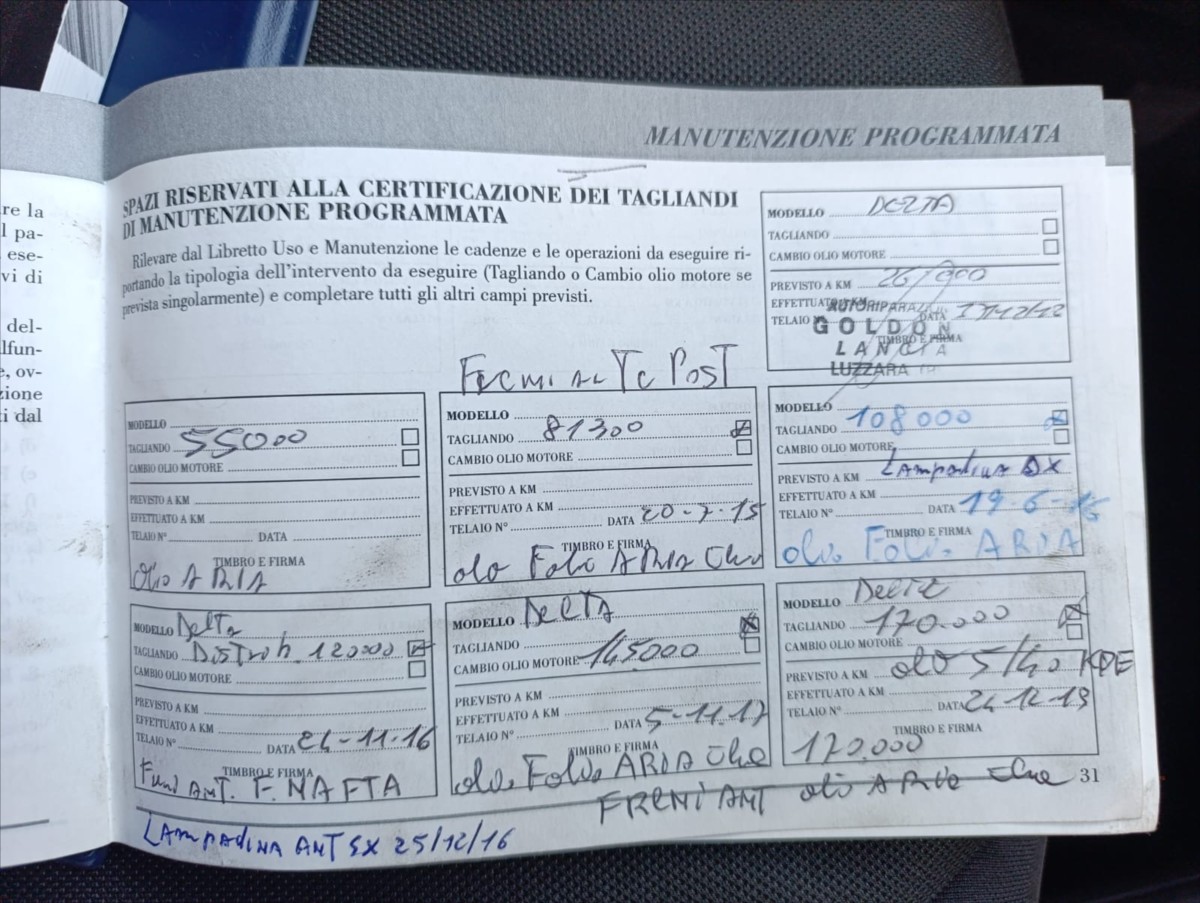 re la
l pa-
ese-
vi di
del-
lfun-
e, ov-
zione
i dal
MANUTENZIONE PROGRAMMATA
SPAZI RISERVATI ALLA CERTIFICAZIONE DEI TAGLIANDI
DI MANUTENZIONE PROGRAMMATA
Rilevare dal Libretto Uso e Manutenzione le cadenze e le operazioni da eseguire ri-
portando la tipologia dell'intervento da eseguire (Tagliando o Cambio olio motore se
prevista singolarmente) e completare tutti gli altri campi previsti.
MODELLO DELTA
TAGLIANDO
CAMBIO OLIO MOTORE
PREVISTO A KM 26/000
EFFETTUATO A KM
TELAIO DATA 17/12/12
TIMBRO E FIRMA
AUTORIPARA
GOLDON
LANCIA
LUZZARA
MODELLO
TAGLIANDO 55000
CAMBIO OLIO MOTORE
PREVISTO A KM
EFFETTUATO A KM
TELAIO N° DATA
TIMBRO E FIRMA
olio ARIA
POST
MODELLO
TAGLIANDO 81300
CAMBIO OLIO MOTORE
PREVISTO A KM
EFFETTUATO A KM
TELAIO N° DATA 20-7-15
TIMBRO E FIRMA
olo ARIA
MODELLO 108000
TAGLIANDO
CAMBIO OLIO MOTORE
PREVISTO A KM LAmpadina DX
EFFETTUATO A KM
TELAIO N° DATA 19-6-16
TIMBRO E FIRMA
ARIA
MODELLO Delta
TAGLIANDO 120000
CAMBIO OLIO MOTORE
PREVISTO A KM
EFFETTUATO A KM
TELAIO N° DATA 24-11-16
TIMBRO E FIRMA
ANT. F. NAFTA
LAmpadiNA ANT SX 25/12/16
MODELLO DelTA
TAGLIANDO
CAMBIO OLIO MOTORE 145000
PREVISTO A KM
EFFETTUATO A KM
TELAIO N° DATA 5-11-17
TIMBRO E FIRMA
ARIA
FRENI ANT
MODELLO Delta
TAGLIANDO 170.000
CAMBIO OLIO MOTORE
PREVISTO A KM olo 5/40
EFFETTUATO A KM
TELAIO N° DATA 24-12-19
TIMBRO E FIRMA
170.000
olo ARIA
31